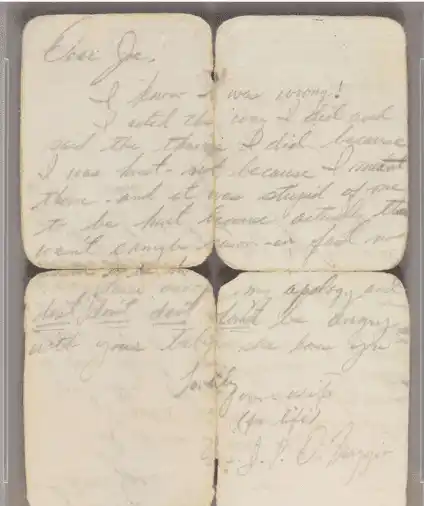 Dear Joe,
I know I was wrong!
I acted the way I did and
said the things I did because
I was hurt - not because I meant
them - and it was stupid of me
to be hurt because actually there
wasn't enough reason - in fact no
reason
my apology and
don't, don't don't don't be angry
with your baby - she loves you
Lovingly
your wife
(for life)